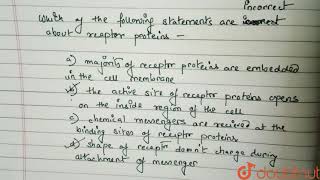 incorrect
Which of the following statements are
about receptor proteins -
a) majority of receptor proteins are embedded
in the cell membrane
b) the active site of receptor proteins opens
on the inside region of the cell
c) chemical messengers are recieved at the
binding sites of receptor proteins
d) shape of receptor doesn't change during
attachment of messenger
doubtnut